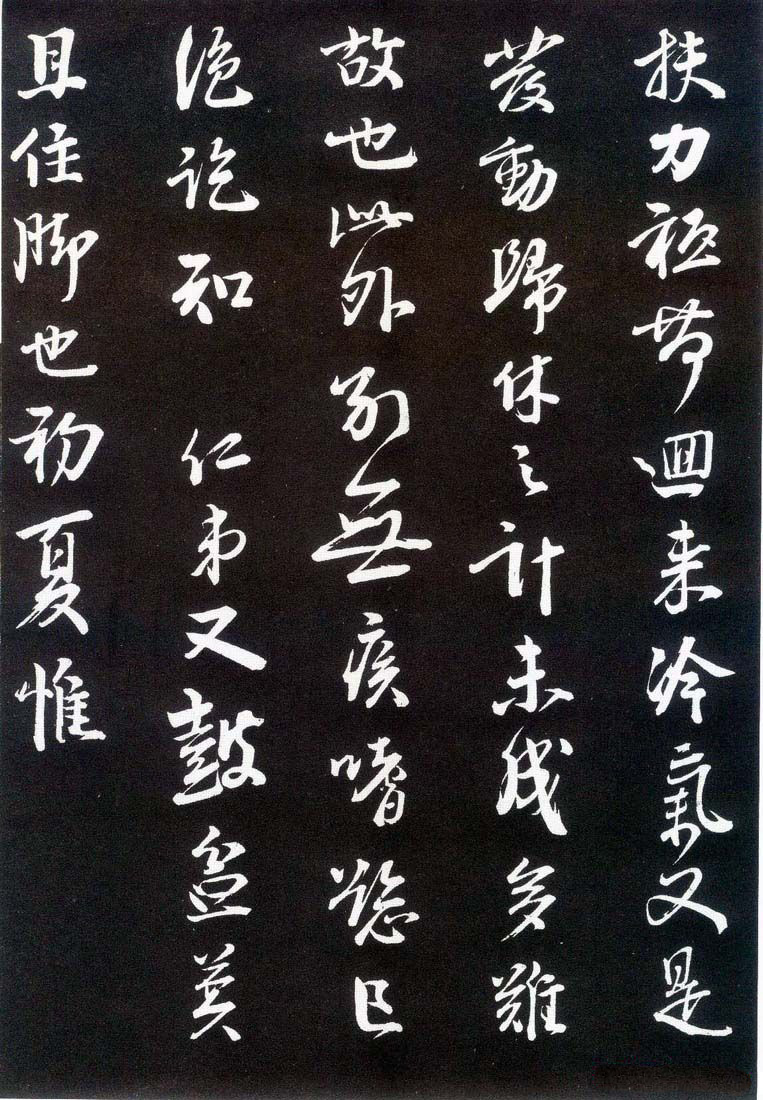 扶力祗帶迴来冷氣又是
發動歸休之計未成多難
故也此外别無疾嗜慾已
絶訖知 仁弟又鼓盆莫
且住脚也初夏惟